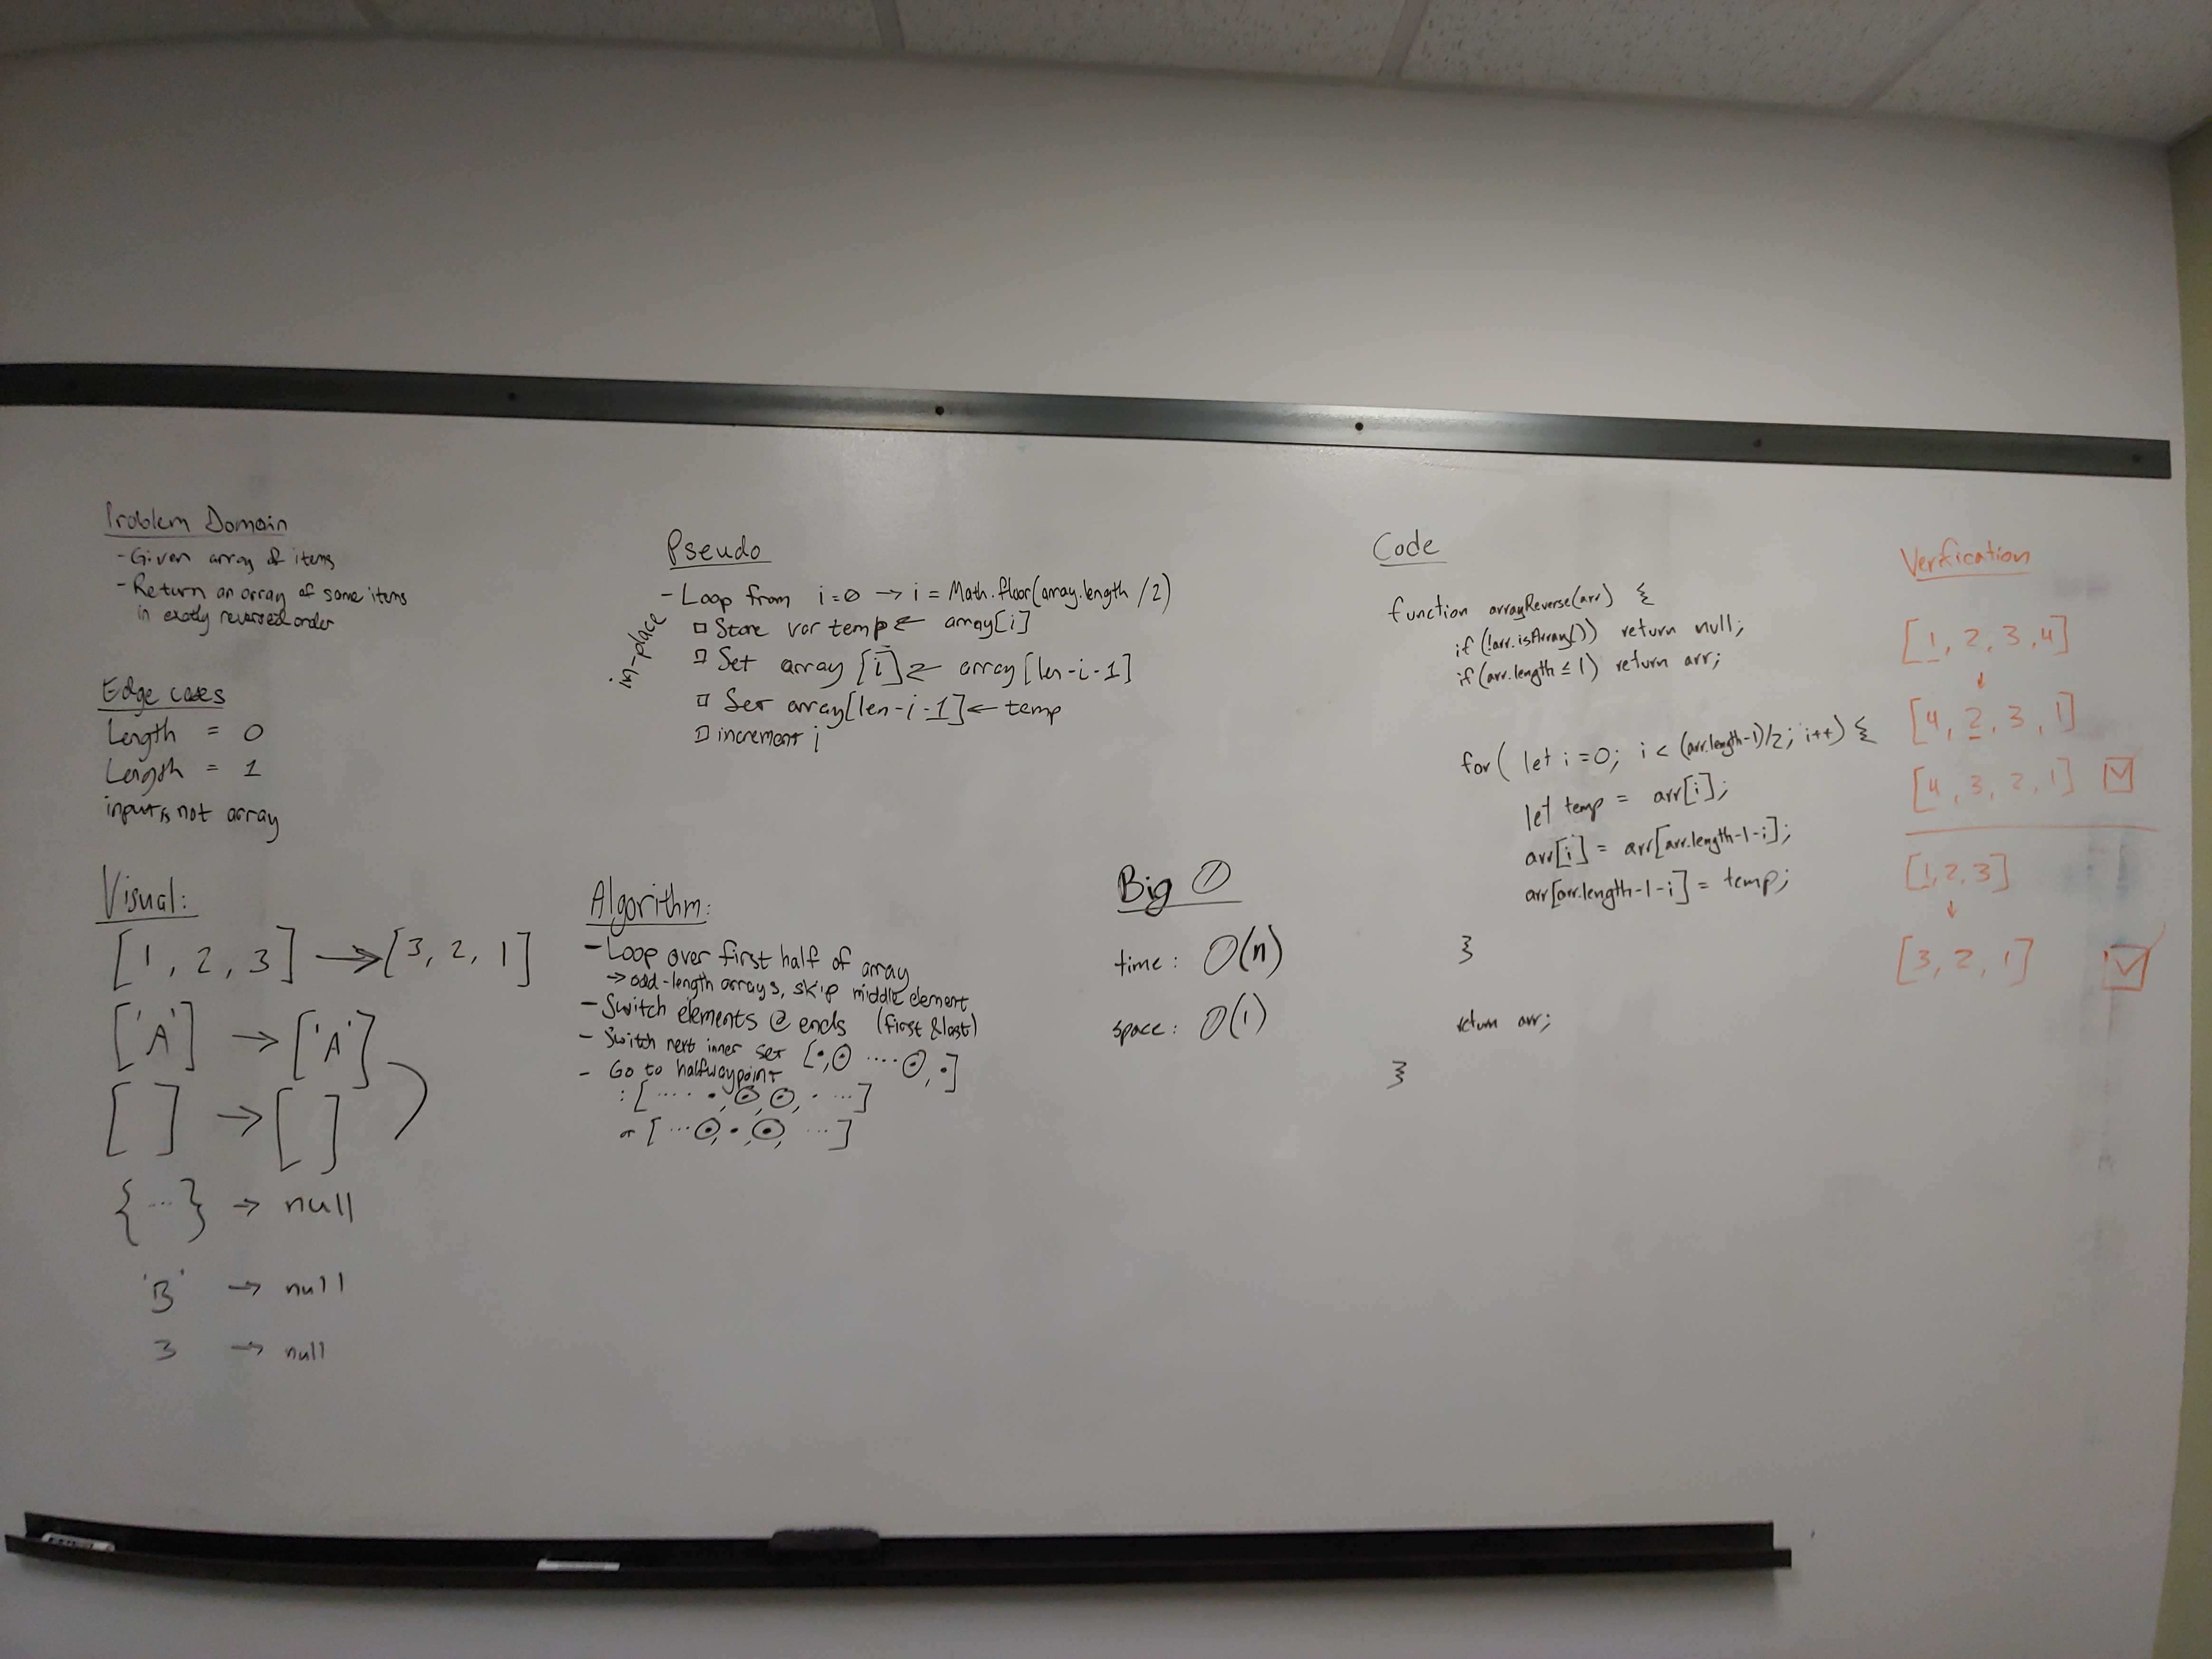 Problem Domain
- Given array of items
- Return an array of same items
in exactly reversed order
Edge cases
Length = 0
Length = 1
input is not array
Visual:
[1, 2, 3] → [3, 2, 1]
['A'] → ['A']
[ ] → [ ]
{ ... } → null
'B' → null
3 → null
Pseudo
in-place
- Loop from i=0 → i = Math.floor(array.length /2)
□ Store var temp ← array[i]
□ Set array [i] ← array [len-i-1]
□ Set array[len-i-1] ← temp
□ increment i
Algorithm:
- Loop over first half of array
→ odd-length arrays, skip middle element
- Switch elements @ ends (first & last)
- Switch next inner set [•,⊙ .... ⊙,•]
- Go to halfway point
: [ .... •,⊙,⊙, • ... ]
or [ ... ⊙,•,⊙, ... ]
Big O
time: O(n)
space: O(1)
Code
function arrayReverse(arr) {
if (!arr.isArray()) return null;
if (arr.length ≤ 1) return arr;
for( let i=0; i < (arr.length-1)/2; i++) {
let temp = arr[i];
arr[i] = arr[arr.length-1-i];
arr[arr.length-1-i] = temp;
}
return arr;
}
Verfication
[1, 2, 3, 4]
↓
[4, 2, 3, 1]
[4, 3, 2, 1] ☑
[1, 2, 3]
↓
[3, 2, 1] ☑